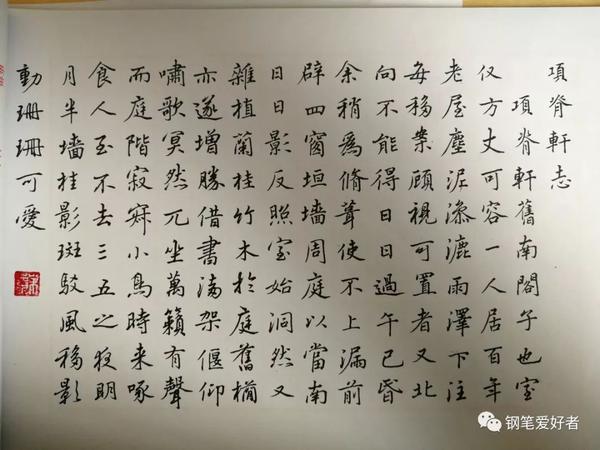 項脊軒志
項脊軒舊南閣子也室
仅方丈可容一人居百年
老屋塵泥滲漉雨澤下注
每移案顧視可置者又北
向不能得日日過午已昏
余稍為脩葺使不上漏前
辟四窗垣墙周庭以當南
日日影反照室始洞然又
雜植蘭桂竹木於庭舊楯
亦遂增勝借書滿架偃仰
嘯歌冥然兀坐萬籟有聲
而庭階寂寂小鳥時來啄
食人至不去三五之夜明
月半墙桂影斑駁風移影
動珊珊可愛
钢笔爱好者